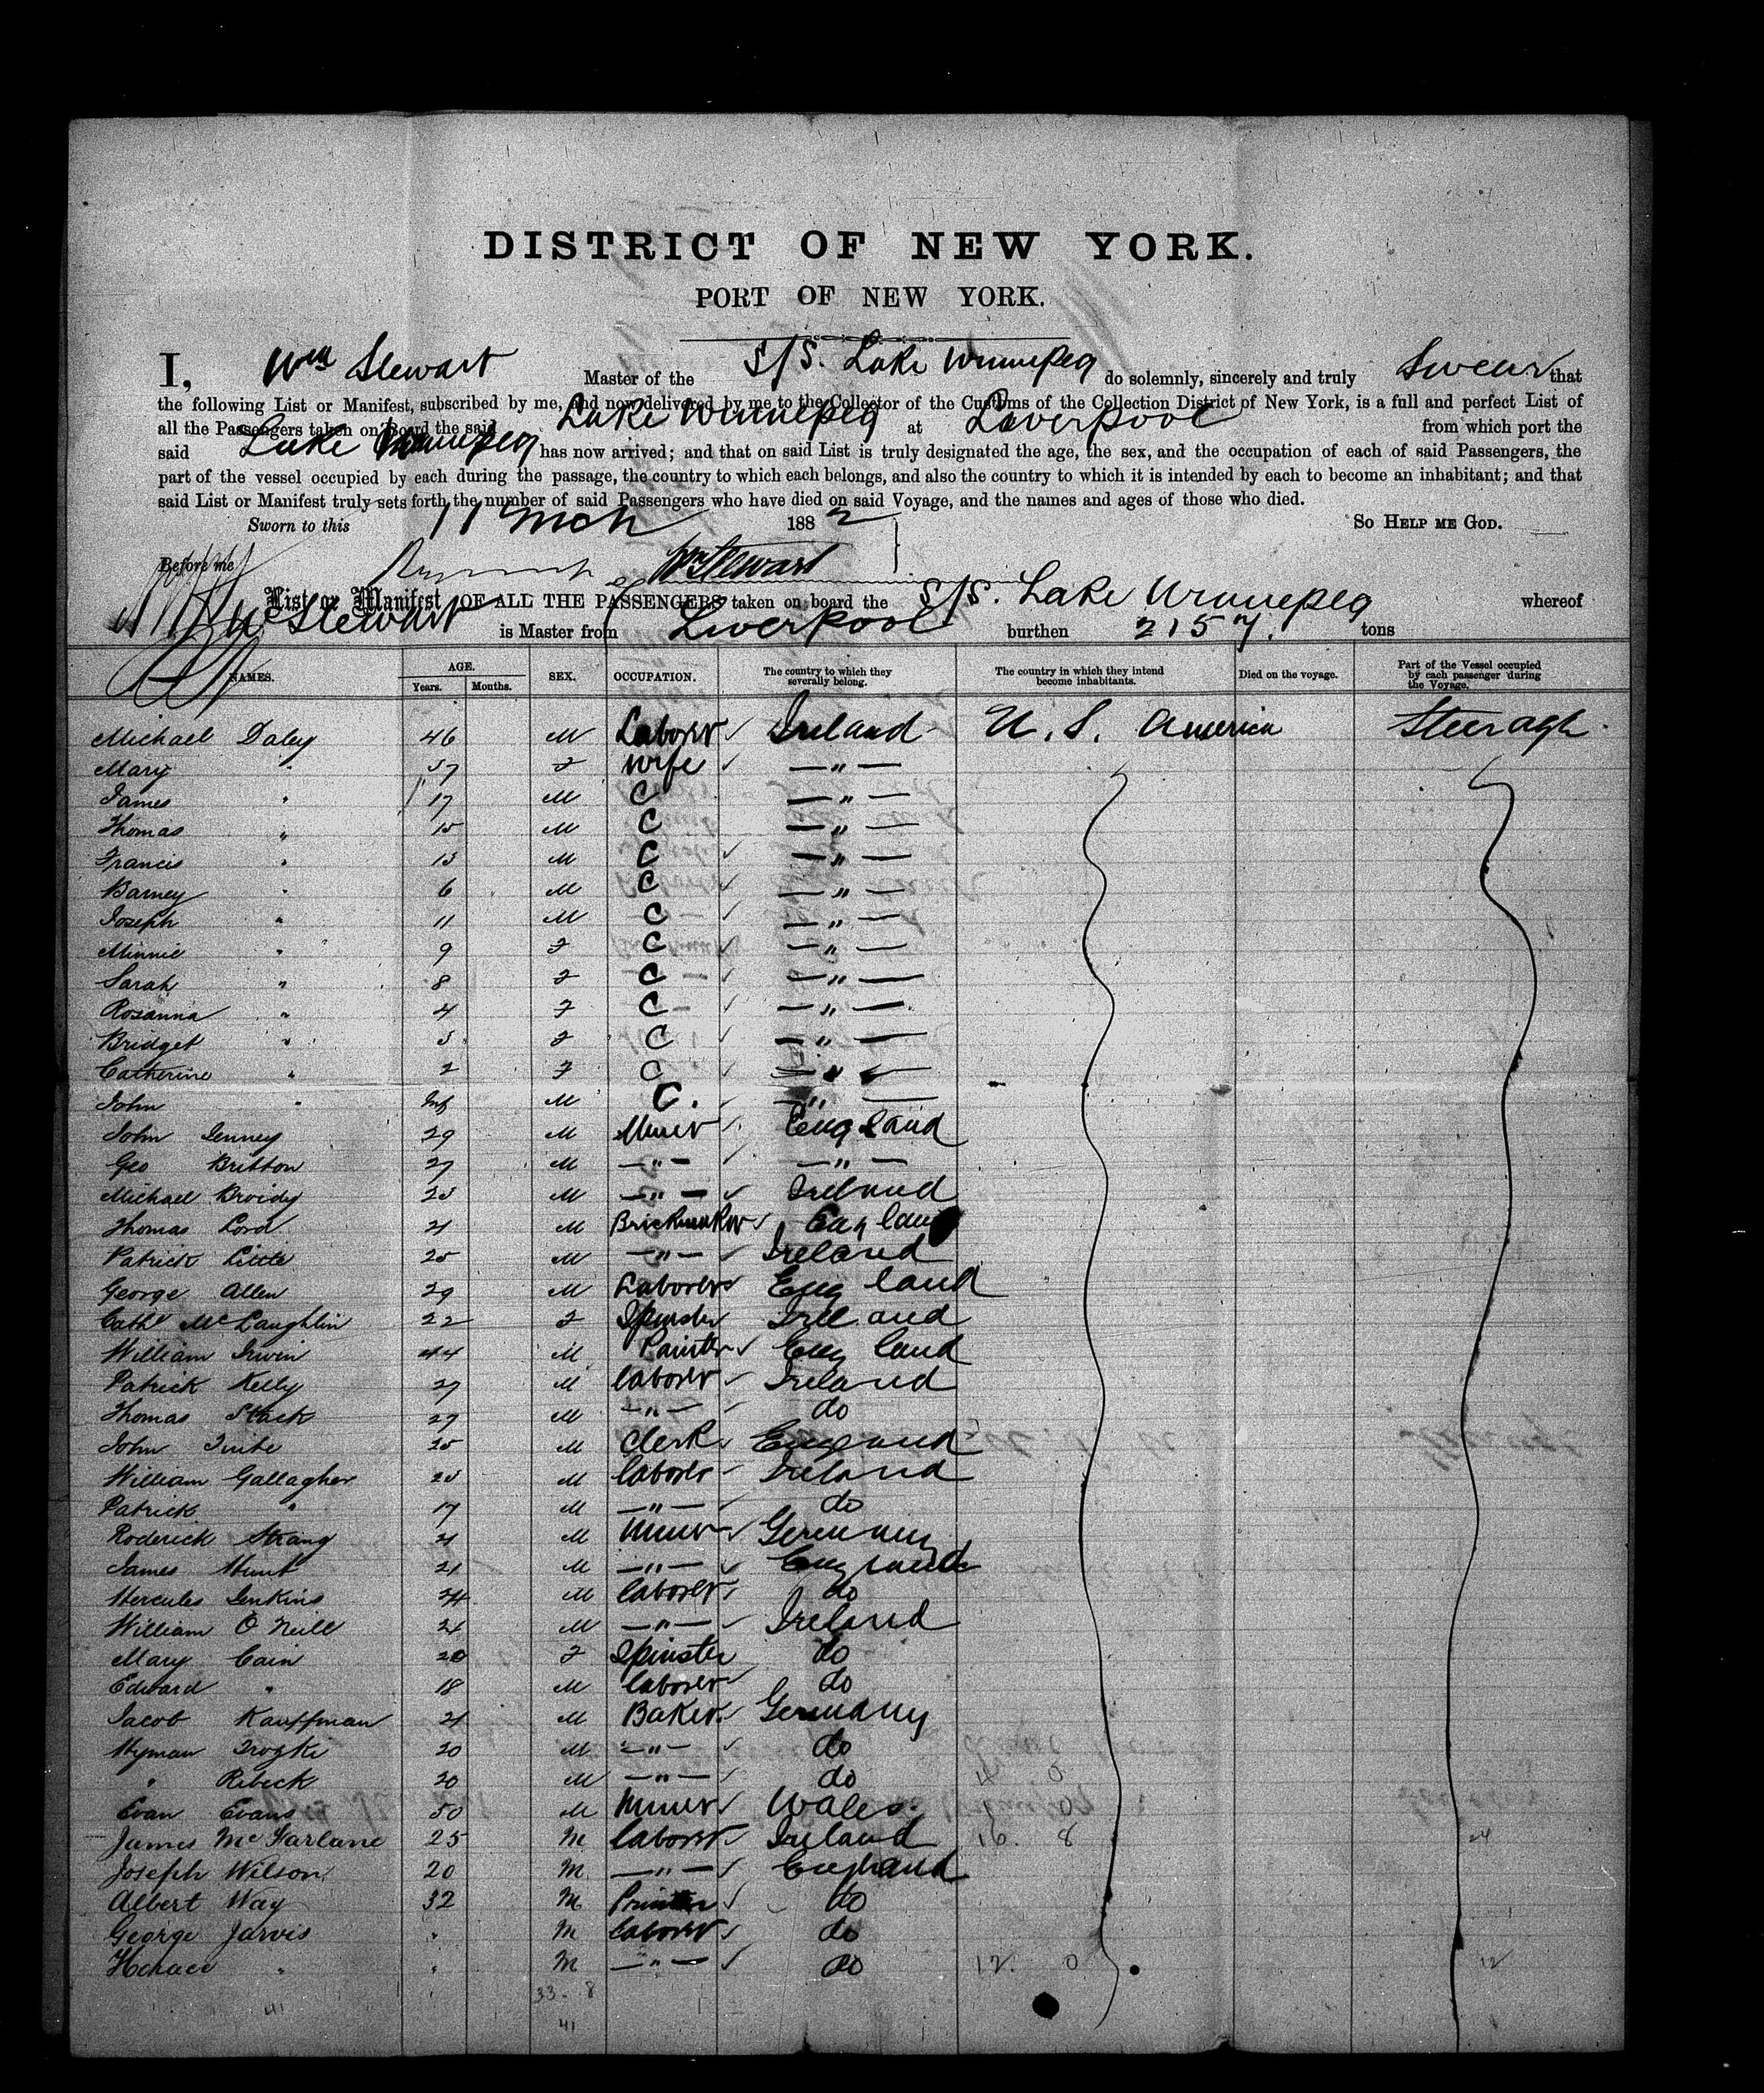 DISTRICT OF NEW YORK.
PORT OF NEW YORK.
I, Wm Stewart Master of the S/S. Lake Winnepeg do solemnly, sincerely and truly Swear that
the following List or Manifest, subscribed by me, and now delivered by me to the Collector of the Customs of the Collection District of New York, is a full and perfect List of
all the Passengers taken on Board the said Lake Winnepeg at Liverpool from which port the
said Lake Winnepeg has now arrived; and that on said List is truly designated the age, the sex, and the occupation of each of said Passengers, the
part of the vessel occupied by each during the passage, the country to which each belongs, and also the country to which it is intended by each to become an inhabitant; and that
said List or Manifest truly sets forth the number of said Passengers who have died on said Voyage, and the names and ages of those who died.
Sworn to this 11 Mch 1882 So Help me God.
Before me Wm Stewart
List or Manifest OF ALL THE PASSENGERS taken on board the S/S. Lake Winnepeg whereof
Wm Stewart is Master from Liverpool burthen 2157. tons
NAMES. AGE. Years. Months. SEX. OCCUPATION. The country to which they severally belong. The country in which they intend become inhabitants. Died on the voyage. Part of the Vessel occupied by each passenger during the Voyage.
Michael Daley 46 M Laborer Ireland U. S. America Steerage
Mary " 37 F Wife "
James " 17 M C "
Thomas " 15 M C "
Francis " 13 M C "
Barney " 6 M C "
Joseph " 11 M C "
Minnie " 9 F C "
Sarah " 8 F C "
Rosanna " 4 F C "
Bridget " 3 F C "
Catherine " 2 F C "
John " Inf M C. "
John Jenney 29 M Miner England
Geo Britton 27 M " "
Michael Broidy 25 M " Ireland
Thomas Lord 21 M Brickmaker England
Patrick Little 25 M " Ireland
George Allen 29 M Laborer England
Cathe McLaughlin 22 F Spinster Ireland
William Irwin 44 M Painter England
Patrick Kelly 27 M Laborer Ireland
Thomas Stack 27 M " do
John Tuite 25 M Clerk England
William Gallagher 25 M Laborer Ireland
Patrick " 17 M " do
Roderick Strang 21 M Miner Germany
James Hunt 21 M " England
Hercules Jenkins 24 M Laborer do
William O'Neill 21 M " Ireland
Mary Cain 20 F Spinster do
Edward " 18 M Laborer do
Jacob Kauffman 21 M Baker Germany
Hyman Trozke 20 M " do
" Rebeck 20 M " do
Evan Evans 50 M Miner Wales.
James McFarlane 25 M Laborer Ireland 16. 8 24
Joseph Wilson 20 M " England
Albert Way 32 M Printer do
George Jarvis " M Laborer do
Horace " " M " do 12. 0 12
33 - 8
41 41